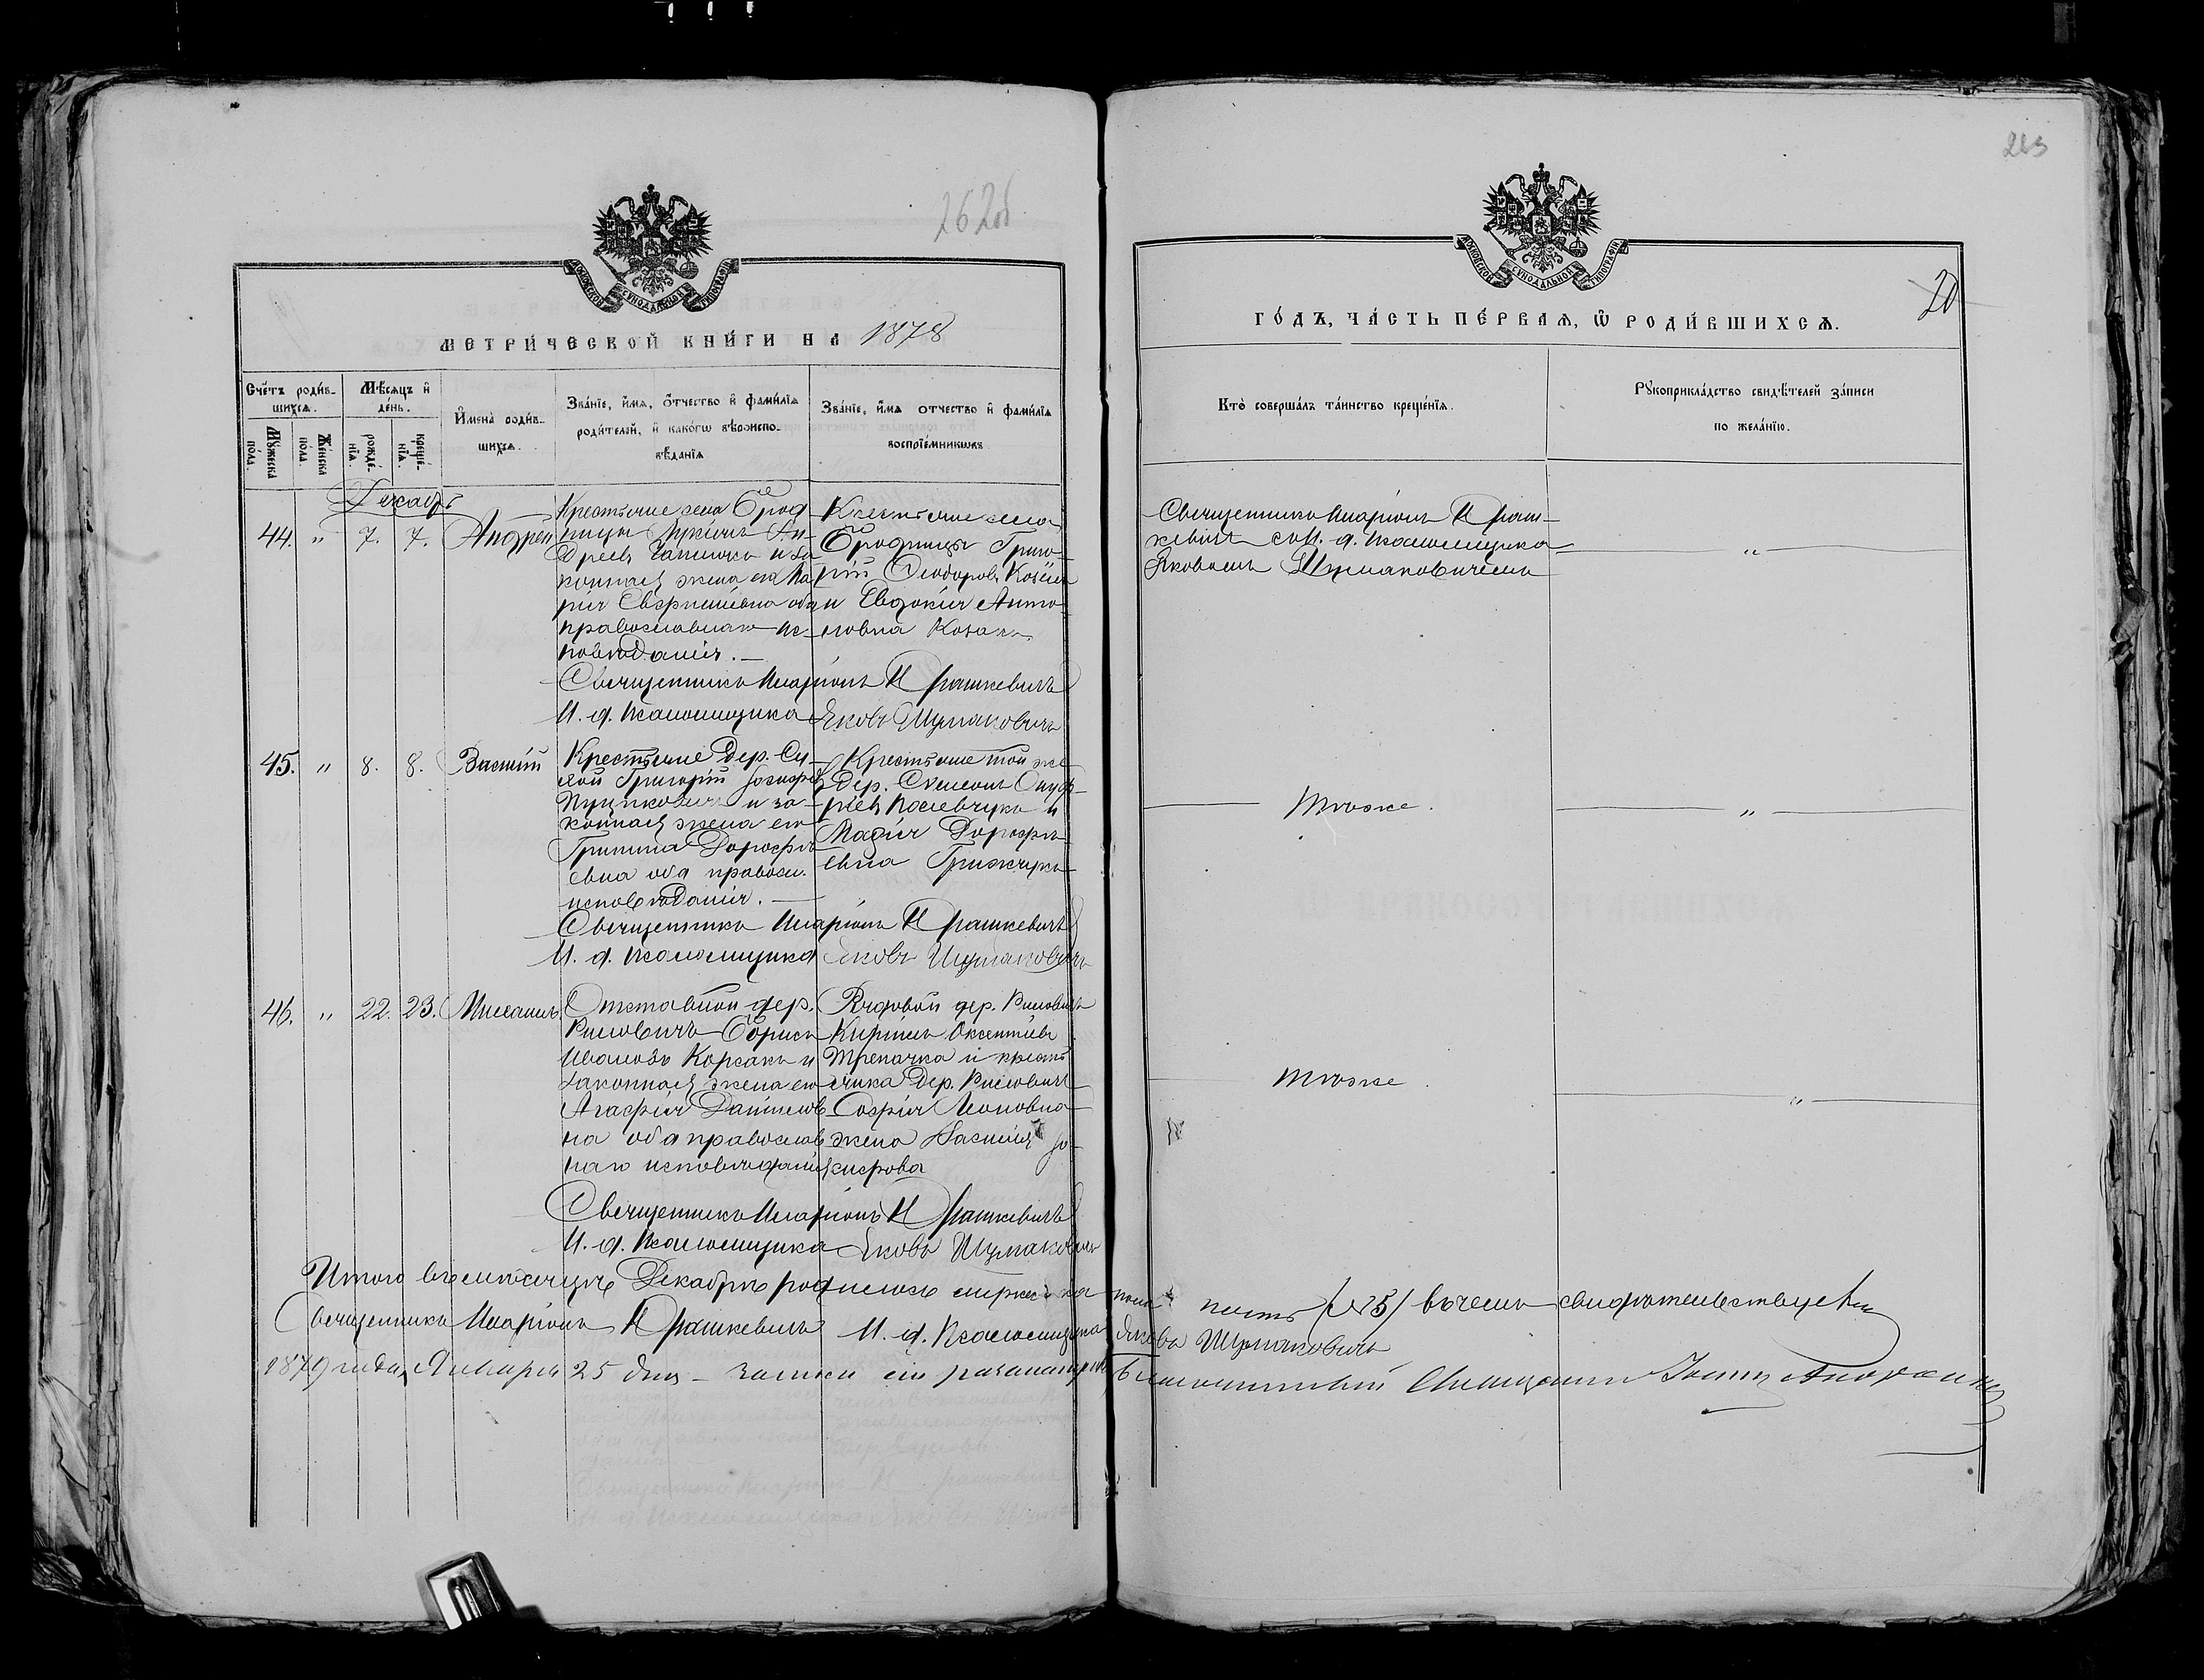 262об
263
МОСКОВСКОЙ СѴНОДАЛЬНОЙ ТИПОГРАФІИ
МЕТРИ́ЧЕСКОЙ КНИ́ГИ НА 1878
Сче́тъ роди́в-
шихсѧ.
Мꙋ́жеска
по́ла.
Же́нска
по́ла.
Мѣ́сѧцъ и҆
де́нь.
рожде́-
нїѧ.
креще́-
нїѧ.
И҆мена̀ роди́в-
шихсѧ.
Зва́нїе, и҆́мѧ, о҆́тчество и҆ фами́лїѧ
роди́телей, и҆ како́гѡ вѣроиспо-
вѣ́данїѧ
Зва́нїе, и҆́мѧ отчество и҆ фами́лїѧ
воспрїе́мникѡвъ
Декабрь
44. " 7. 7. Андрей
Крестьяне села Брод-
ницы Лукіанъ Ан-
дреевъ и за-
конная жена его Ма-
рія оба
православнаго ис-
повѣданія. —
Крестьяне села
Бродницы Григо-
рій Ѳеодоровъ
и Евдокія Анто-
новна
Священникъ Иларіонъ Юрашкевичъ
И. д. Псаломщика Яковъ Шумаковичъ
45. " 8. 8. Василій
Крестьяне дер.
Григорій Іосифовъ
и за-
конная жена его
Дорофе-
евна оба правосл.
исповѣданія. —
Крестьяне той же
дер. Симеонъ Онуф-
ріевъ и
Марія Дорофе-
евна
Священникъ Иларіонъ Юрашкевичъ
И. д. Псаломщика Яковъ Шумаковичъ
46. " 22. 23. Михаилъ
Отставной дер.
Рыловичъ Борисъ
Ивановъ Корсакъ и
законная жена его
Агафія Даниилов-
на оба православ-
наго исповѣданія
Рядовой дер. Рыловичъ
Кирилъ Оксентіевъ
Трепачка и кресть-
янка дер. Рыловичъ
Софія Леоновна
жена Василія Іо-
сифова
Священникъ Иларіонъ Юрашкевичъ
И. д. Псаломщика Яковъ Шумаковичъ
Итого въ мѣсяцѣ Декабрѣ родилось мужеска пола пять (№5) въ чемъ свидѣтельствуемъ
Священникъ Иларіонъ Юрашкевичъ И. д. Псаломщика Яковъ Шумаковичъ
1879 года, Января 25 дня – записи сіи Благочинный Священникъ
ГО́ДЪ, ЧА́СТЬ ПЕ́РВАѦ, Ѽ РОДИ́ВШИХСѦ.
20
МОСКОВСКОЙ СѴНОДАЛЬНОЙ ТИПОГРАФІИ
Кто̀ соверша́лъ та́инство креще́нїѧ.
Рꙋкоприкла́дство свидѣ́телей за́писи
по жела́нїю.
Священникъ Иларіонъ Юраш-
кевичъ съ И. д. Псаломщика
Яковомъ Шумаковичемъ
"
Тоже.
"
Тоже
"